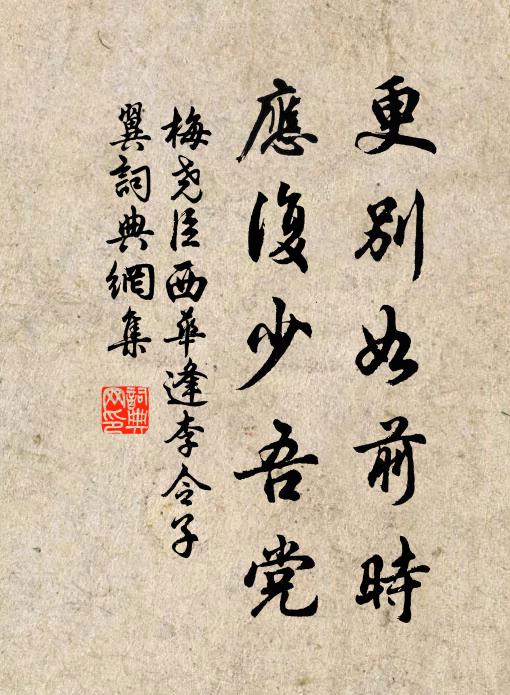 更别如前時
應復少吾党
梅尧臣西華逢李令子
翼詞典網集
詞典網印